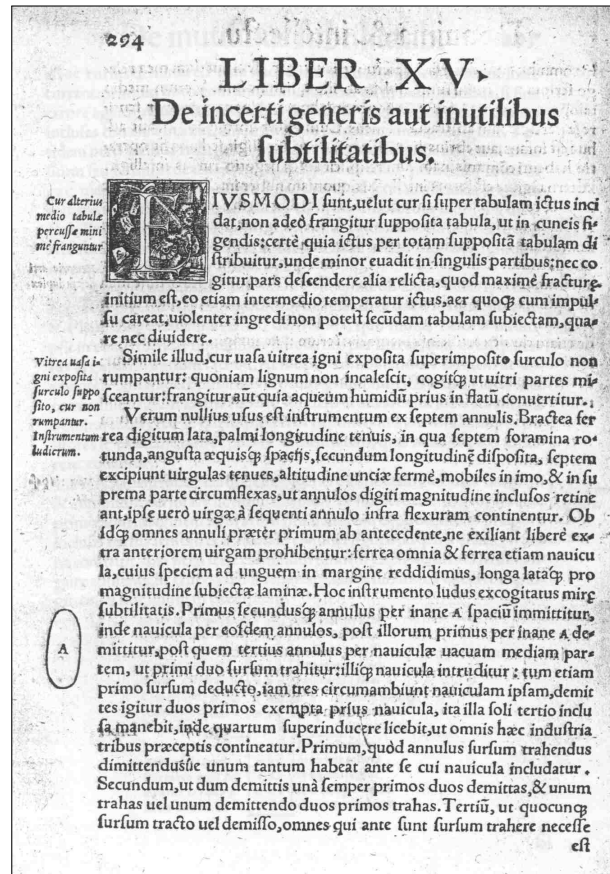 294
LIBER XV.
De incerti generis aut inutilibus
subtilitatibus.
Cur alterius
medio tabulæ
percussæ mini
mè franguntur
EIVSMODI sunt, uelut cur si super tabulam ictus inci
dat, non adeò frangitur supposita tabula, ut in cuneis fi-
gendis: certè, quia ictus per totam suppositã tabulam di
stribuitur, unde minor euadit in singulis partibus: nec co
gitur pars descendere alia relicta, quod maximè fracturę
initium est, eo etiam intermedio temperatur ictus, aer quoq; cum impul
su careat, uiolenter ingredi non potest secũdam tabulam subiectam, qua-
re nec diuidere.
Vitrea uasa i-
gni exposita
surculo suppo
sito, cur non
rumpantur.
Simile illud, cur uasa uitrea igni exposita superimposito surculo non
rumpantur: quoniam lignum non incalescit, cogitq; ut uitri partes mi-
sceantur: frangitur aũt quia aqueum humidũ prius in flatũ conuertitur.
Instrumentum
ludicrum.
Verum nullius usus est instrumentum ex septem annulis. Bractea fer
rea digitum lata, palmi longitudine tenuis, in qua septem foramina ro-
tunda, angusta æquisq; spacijs, secundum longitudinẽ disposita, septem
excipiunt uirgulas tenues, altitudine unciæ fermè, mobiles in imo, & in su
prema parte circumflexas, ut annulos digiti magnitudine inclusos retine
ant, ipsę uerò uirgæ à sequenti annulo infra flexuram continentur. Ob
idq; omnes annuli præter primum ab antecedente, ne exiliant liberè ex-
tra anteriorem uirgam prohibentur: ferrea omnia & ferrea etiam nauicu
la, cuius speciem ad unguem in margine reddidimus, longa lataq; pro
magnitudine subiectæ laminæ. Hoc instrumento ludus excogitatus mirę
subtilitatis. Primus secundusq; annulus per inane A spaciũ immittitur,
A
inde nauicula per eosdem annulos, post illorum primus per inane A de-
mittitur, post quem tertius annulus per nauiculæ uacuam mediam par-
tem, ut primi duo sursum trahitur: illiq; nauicula intruditur: tum etiam
primo sursum deducto, iam tres circumambiunt nauiculam ipsam, demit
tes igitur duos primos exempta prius nauicula, ita illa soli tertio inclu
sa manebit, inde quartum superinducere licebit, ut omnis hæc industria
tribus præceptis contineatur. Primum, quòd annulus sursum trahendus
dimittendusúe unum tantum habeat ante se cui nauicula includatur.
Secundum, ut dum demittis unà semper primos duos demittas, & unum
trahas uel unum demittendo duos primos trahas. Tertiũ, ut quocunq;
sursum tracto uel demisso, omnes qui ante sunt sursum trahere necesse
est